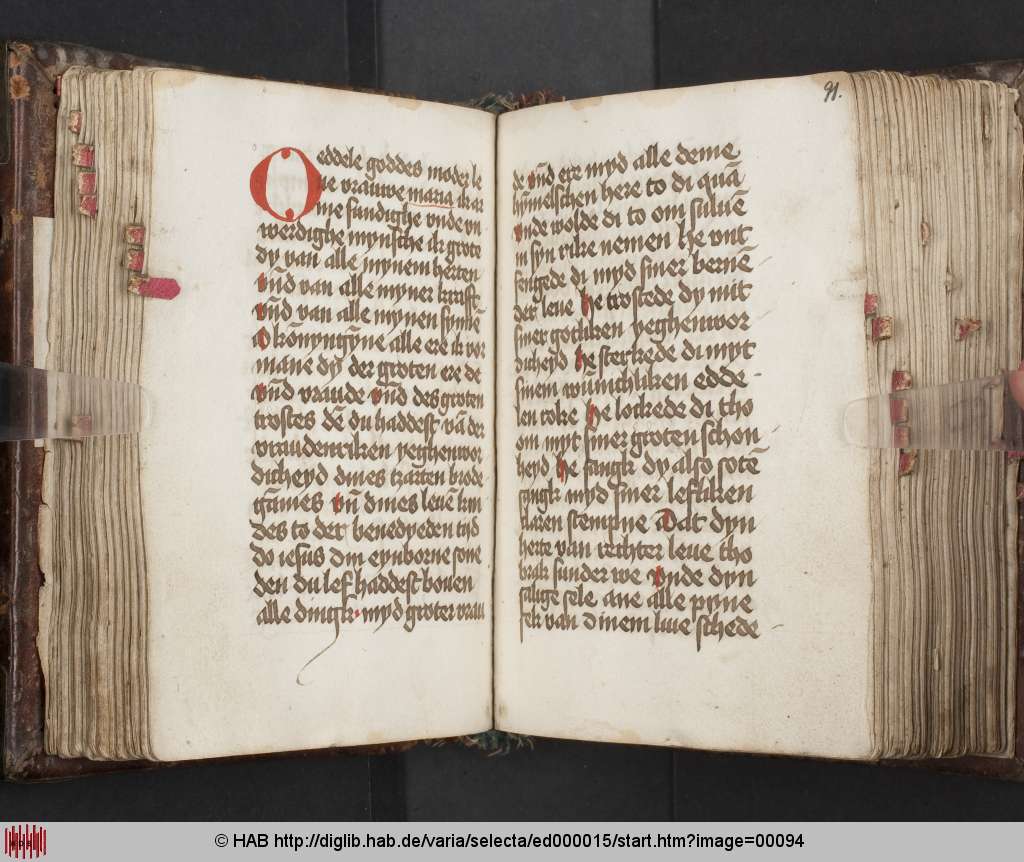 O eddele goddes moder le
ue vrauwe maria ik ar
me sundighe vnde vn
werdighe mynsche ik grote
dy van alle mynem herten
vn̄d van alle myner krafft
vn̄d van alle mynen synnē
O kōnyngȳne alle ere ik vor
mane dy der groten ere de
vn̄d vraude vn̄d des groten
trostes dē du haddest vā der
vraudenriken yeghenwor
dicheyd dines trarten brode
gāmes vn̄ dines leuē kin
des to der benedyeden tyd
do iesus din eynborne sone
den du lef haddest bouen
alle dingk myd groter vrau
91.
de vn̄d ere myd alle deme
hȳmelschen here to di quā
vnde wolde di to om suluē
in syn rike nemen he vnt
fengede di myd siner bernē
der leue he trostede dy mit
siner gotliken yeghenwor
dicheyd he sterkede di myt
sinem wunichliken edde
len roke he lockede di tho
om myt siner groten schon
heyd he sangk dy also sotē
sangk myd siner lefliken
claren stempne Dat dyn
herte van rechter leue tho
brak sunder we vnde dyn
salige sele ane alle pyne
sek van dinem liue schede
© HAB http://diglib.hab.de/varia/selecta/ed000015/start.htm?image=00094